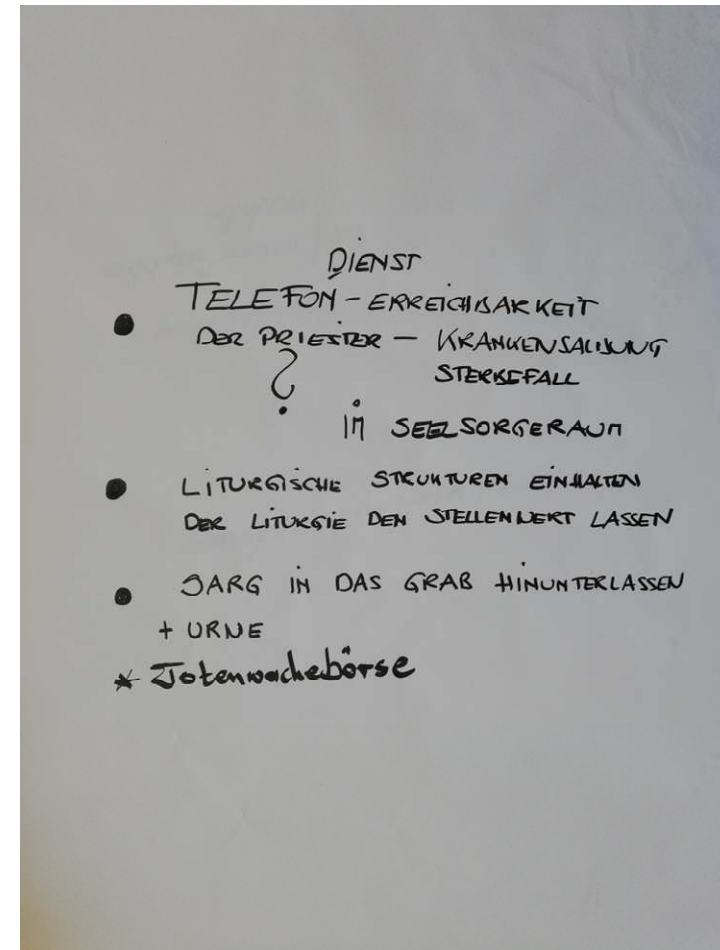 DIENST
• TELEFON - ERREICHBARKEIT
DER PRIESTER - KRANKENSALBUNG
? STERBEFALL
IM SEELSORGERAUM
• LITURGISCHE STRUKTUREN EINHALTEN
DER LITURGIE DEN STELLENWERT LASSEN
• SARG IN DAS GRAB HINUNTERLASSEN
+ URNE
* Totenwachebörse